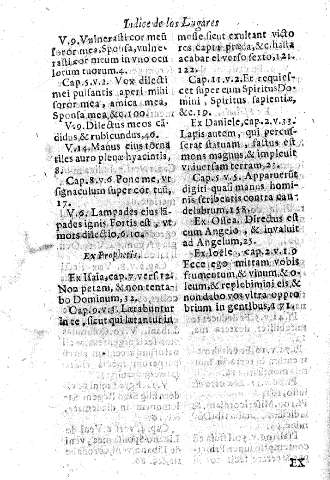 Indice de los Lugares
V. 9. Vulnerasti cor meū
soror mea, Sponsa, vulne-
rasti cor meum in vno ocu
lorum tuorum. 4.
Cap. 5. v. 2. Vox dilecti
mei pulsantis aperi mihi
soror mea, amica mea,
Sponsa mea, &c. 100.
V. 9. Dilectus meus cā-
didus, & rubicundus, 40.
V. 14. Manus eius torna
tiles auro plenæ hyacintis,
8.
Cap. 8. v. 6 Pone me, vt
signaculum super cor tuū,
17.
V. 6. Lampades eius lā-
pades ignis Fortis est, vt
mors dilectio, 6. 10.
Ex Prophetis.
Ex Isaia, cap. 7. vers. 12.
Non petam, & non tenta-
bo Dominum, 32.
Cap. 9. v. 3. Lætabuntur
in te, sicut qui lætantur in
messe, sicut exultant victo
res capta præda, & c. hasta
acabar el verso sexto, 121.
122.
Cap. 11. v. 2. Et requies-
cet super eum Spiritus Do-
mini, Spiritus sapientiæ,
& c. 19.
Ex Daniele, cap. 2. v. 33.
Lapis autem, qui percus-
serat statuam, factus est
mons magnus, & impleuit
vniuersam terram, 23.
Cap. 5. v. 5. Apparuerūt
digiti quasi manus homi-
nis scribentis contra can-
delabrum, 158.
Ex Ossea. Directus est
cum Angelo, & inualuit
ad Angelum, 25.
Ex Ioele, cap. 2. v. 19
Ecce ego mittam vobis
frumentum & vinum, & o-
leum, & replebimini eis, &
non dabo vos vltra oppro
brium in gentibus, 171.
EX